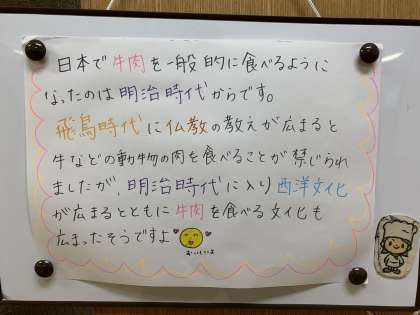 日本で牛肉を一般的に食べるように
なったのは明治時代からです。
飛鳥時代に仏教の教えが広まると
牛などの動物の肉を食べることが禁じられ
ましたが、明治時代に入り西洋文化
が広まるとともに牛肉を食べる文化も
広まったそうですよ